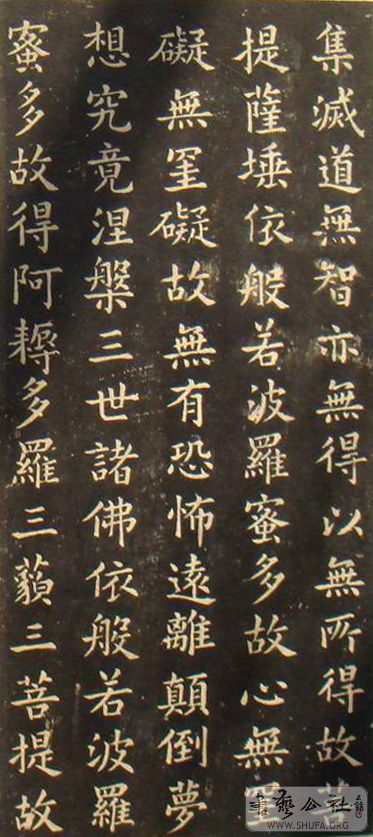 集滅道無智亦無得以無所得故菩
提薩埵依般若波羅蜜多故心無罣
礙無罣礙故無有恐怖遠離顛倒夢
想究竟涅槃三世諸佛依般若波羅
蜜多故得阿耨多羅三藐三菩提故
書藝公社
WWW.SHUFA.ORG